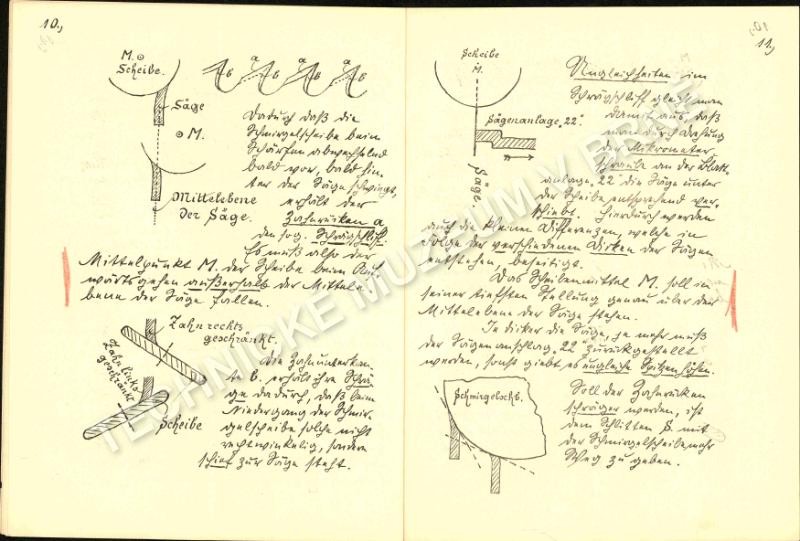 10.,
M.
Scheibe.
a a a a
b b b b
Säge
M.
Mittelebene
der Säge.
Dadurch daß die
Schmirgelscheibe beim
Schärfen abwechselnd
bald vor, bald hin-
ter der Säge schwingt,
erhält der
Zahnrücken a
den sog. Schrägschliff.
Es muß also der
Mittelpunkt M. der Scheibe beim Auf-
wärtsgehen außerhalb der Mittele-
bene der Säge fallen.
Zahn rechts
geschränkt.
Zahn links
geschränkt
Scheibe
Die Zahnunterkan-
te b. erhält ihre Schrä-
ge dadurch, daß beim
Niedergang der Schmir-
gelscheibe solche nicht
rechtwinkelig, sondern
schief zur Säge steht.
11.,
Scheibe
M.
Sägenanlage "22".
Säge.
Ungleichheiten im
Schrägschliff gleicht man
damit aus, daß
man durch Drehung
der Mikrometer-
schraube an der Blatt-
anlage "22" die Säge unter
der Scheibe entsprechend ver-
schiebt. Hierdurch werden
auch die kleinen Differenzen, welche in
Folge der verschiedenen Dicken der Sägen
entstehen, beseitigt.
Das Scheibenmittel M. soll in
seiner tiefsten Stellung genau über der
Mittelebene der Säge stehen.
Je dicker die Säge, je mehr muß
der Sägenanschlag "22" zurückgestellt
werden, sonst giebt es ungleiche Spitzenhöhen.
Schmirgelschb.
Soll der Zahnrücken
schräger werden, ist
dem Schlitten S mit
der Schmirgelscheibe mehr
Weg zu geben.
TECHNICKÉ MUZEUM V BRNĚ